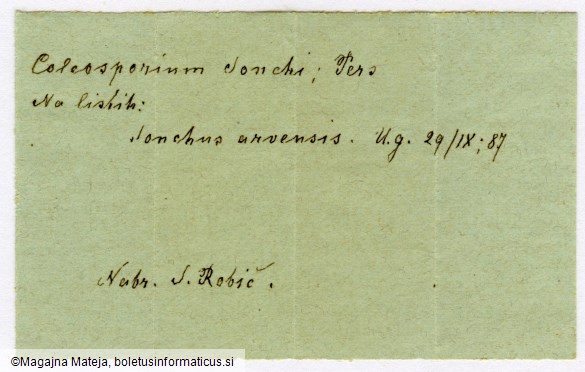 Coleosporium Sonchi; Pers
Na listih:
Sonchus arvensis. U.g. 29/IX; 87
Nabr. S. Robič.
©Magajna Mateja, boletusinformaticus.si